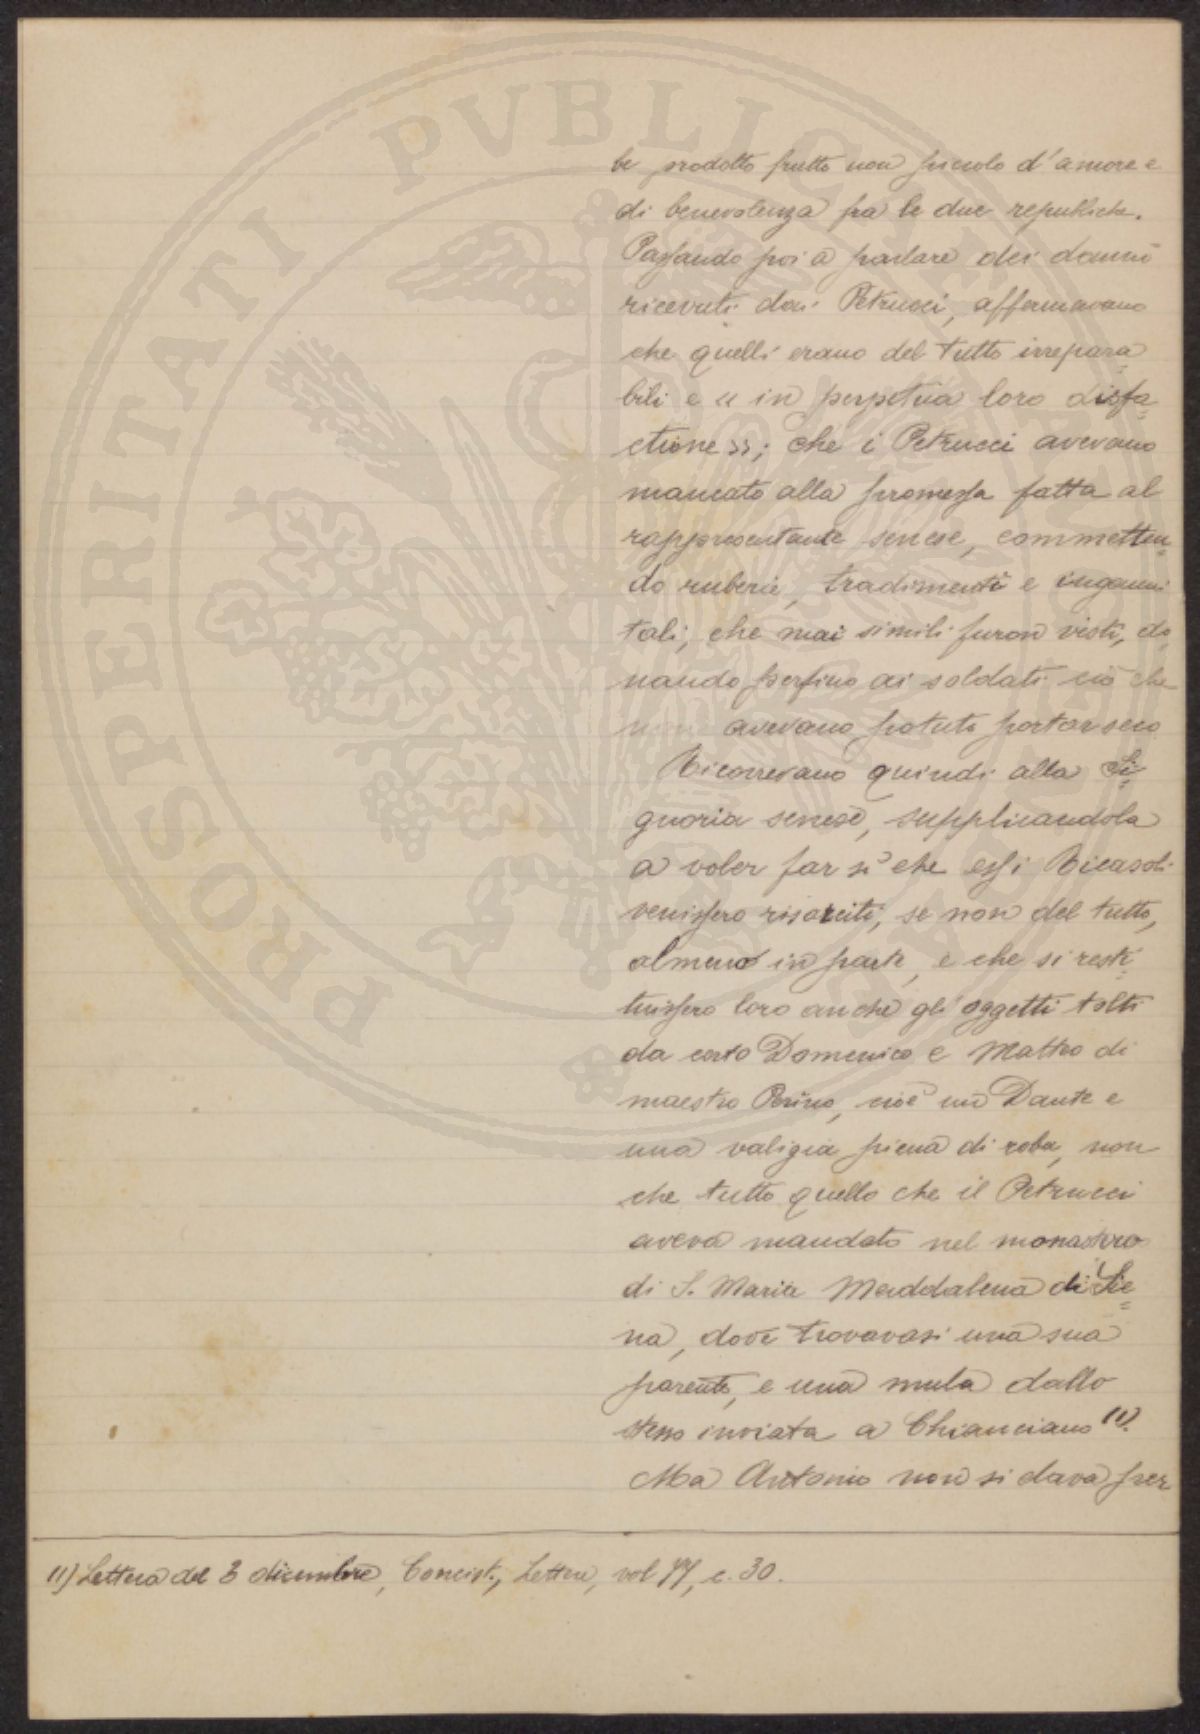 be prodotto frutto non piccolo d'amore e
di benevolenza fra le due republiche.
Passando poi a parlare dei danni
ricevuti dai Petrucci, affermavano
che quelli erano del tutto irrepara=
bili e « in perpetua loro disfa=
ctione »; che i Petrucci avevano
mancato alla promessa fatta al
rappresentante senese, commetten=
do ruberie, tradimenti e inganni
tali, che mai simili furon visti, do=
nando perfino ai soldati ciò che
non avevano potuto portar seco
Ricorrevano quindi alla Si=
gnoria senese, supplicandola
a voler far sì che essi Ricasoli
venissero risarciti, se non del tutto,
almeno in parte, e che si resti=
tuissero loro anche gli oggetti tolti
da certo Domenico e Matteo di
maestro Perino, cioè un Dante e
una valigia piena di roba, non
che tutto quello che il Petrucci
aveva mandato nel monastero
di S. Maria Maddalena di Sie=
na, dove trovavasi una sua
parente, e una mula dallo
stesso inviata a Chianciano (1).
Ma Antonio non si dava per
(1) Lettera del 3 dicembre, Concist., Lettere, vol 77, c. 30.
PROSPERITATI PVBLICAE